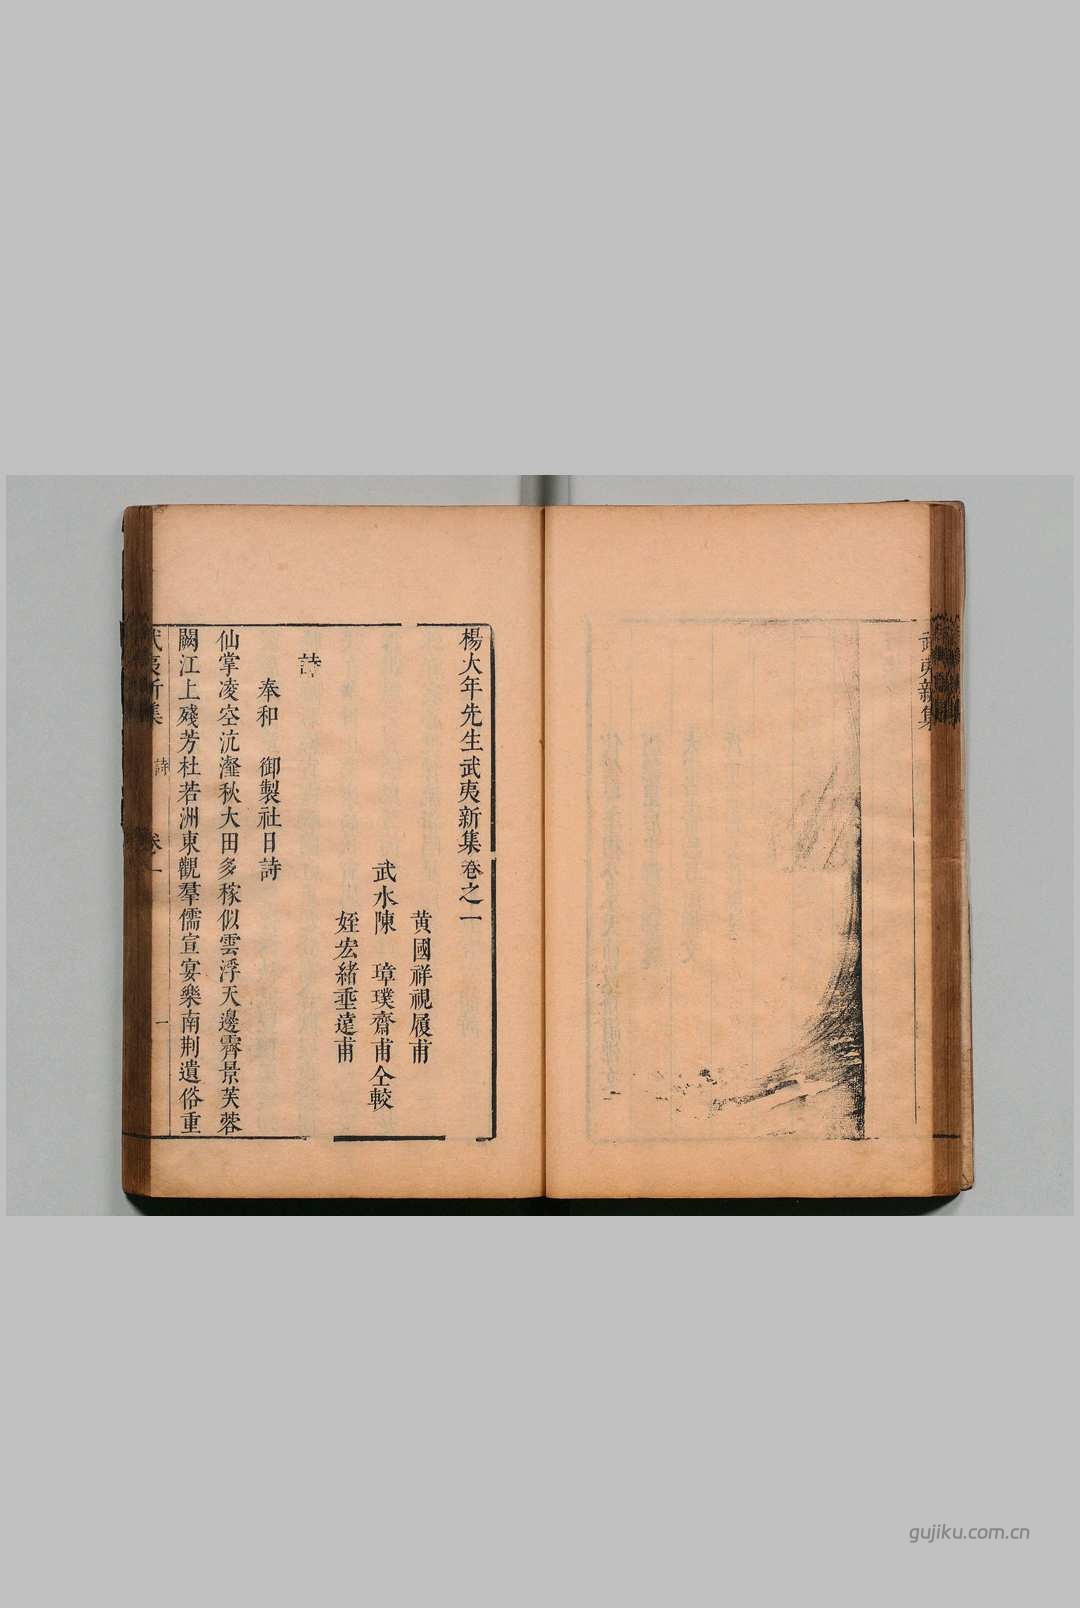 武夷新集
楊大年先生武夷新集卷之一
黄國祥視履甫
武水陳　璋璞齋甫仝較
姪宏緒垂遠甫
詩
奉和　御製社日詩
仙掌凌空沆瀣秋大田多稼似雲浮天邊霽景芙蓉
闕江上殘芳杜若洲東觀羣儒宣宴樂南荆遺俗重
武夷新集　詩　卷一　一
gujiku.com.cn